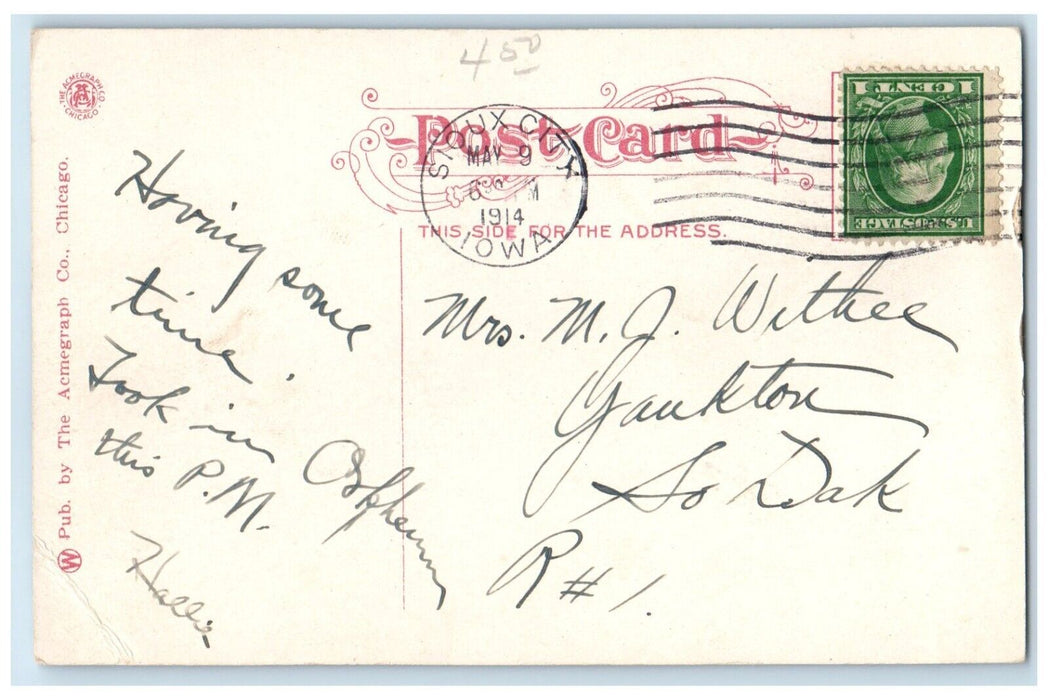 4 50
THE ACMEGRAPH CO. CHICAGO
Post Card
THIS SIDE FOR THE ADDRESS.
SIOUX CITY
MAY 9
M
1914
IOWA
1 CENT 1
U.S. POSTAGE
Having some
time.
Took in Orpheum
this P.M.
Hallie
Mrs. M. J. Withee
Yankton
So Dak
R # 1.
W Pub. by The Acmegraph Co., Chicago.